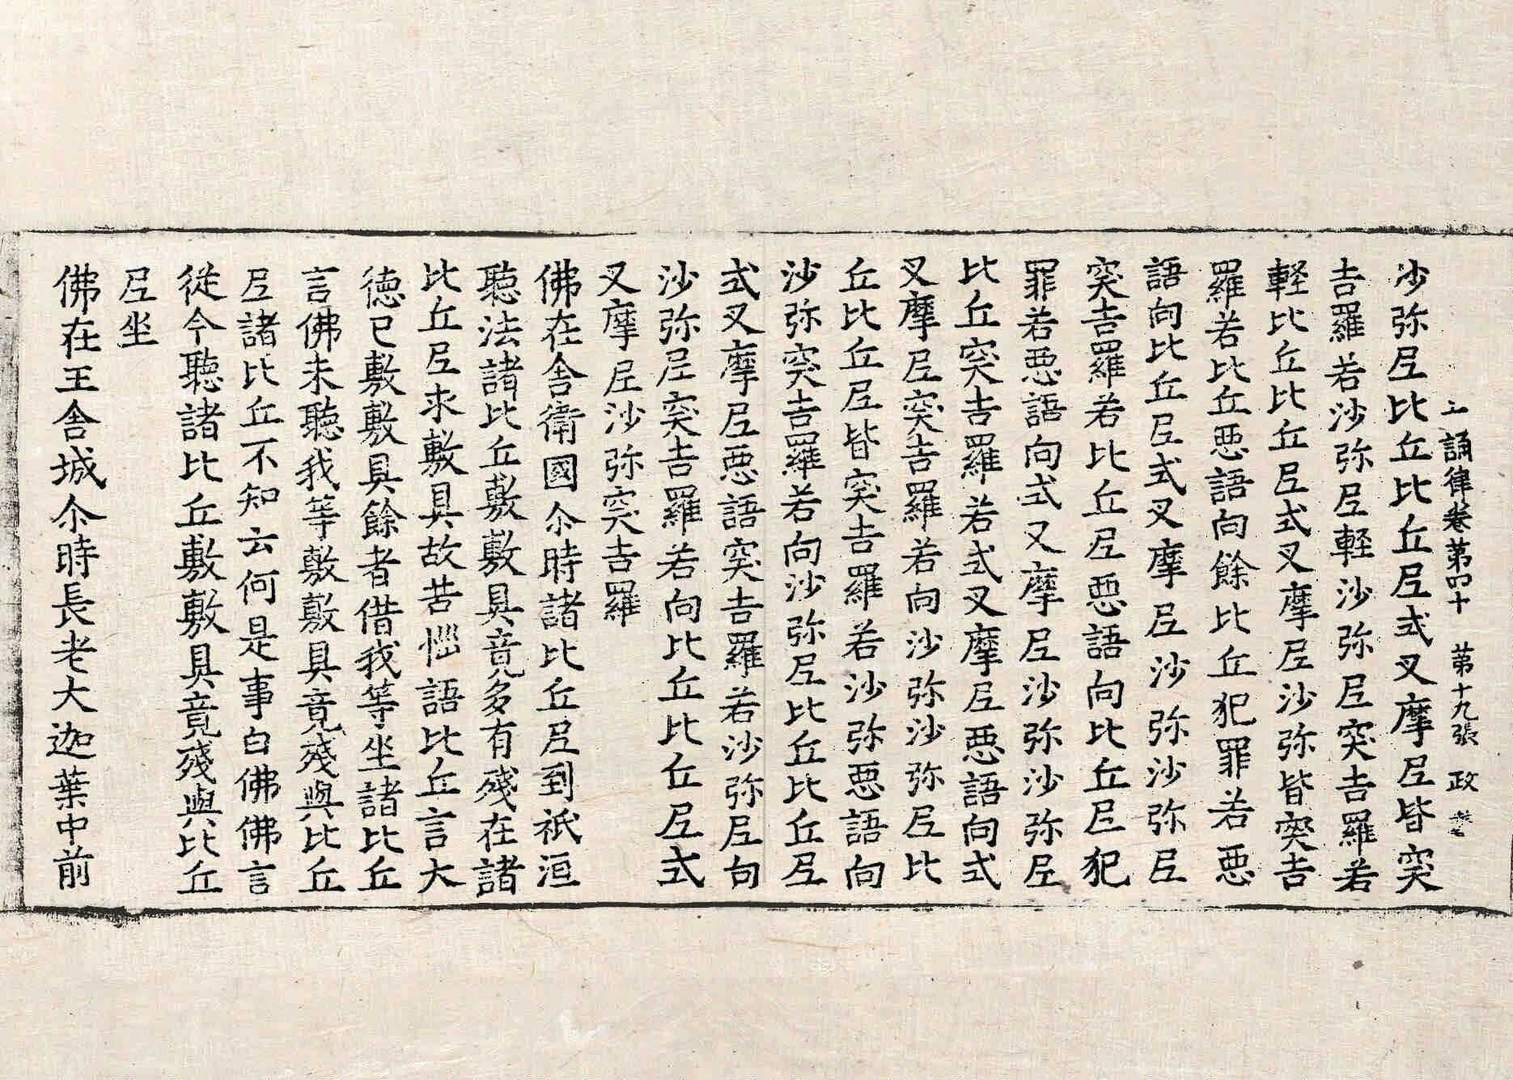 誦律卷苐四十 苐十九張 政
沙弥尼比丘比丘尼式叉摩尼皆突
吉羅若沙弥尼軽沙弥尼突吉羅若
軽比丘比丘尼式叉摩尼沙弥皆突吉
羅若比丘惡語向餘比丘犯罪若惡
語向比丘尼式叉摩尼沙弥沙弥尼
突吉羅若比丘尼惡語向比丘尼犯
罪若惡語向式叉摩尼沙弥沙弥尼
比丘突吉羅若式叉摩尼惡語向式
叉摩尼突吉羅若向沙弥沙弥尼比
丘比丘尼皆突吉羅若沙弥惡語向
沙弥突吉羅若向沙弥尼比丘比丘尼
式叉摩尼惡語突吉羅若沙弥尼向
沙弥尼突吉羅若向比丘比丘尼式
叉摩尼沙弥突吉羅
佛在舎衛國尒時諸比丘尼到祇洹
聽法諸比丘敷敷具竟多有殘在諸
比丘尼求敷具故苦惱語比丘言大
徳已敷敷具餘者借我等坐諸比丘
言佛未聽我等敷敷具竟殘與比丘
尼諸比丘不知云何是事白佛佛言
従今聽諸比丘敷敷具竟殘與比丘
尼坐
佛在王舎城尒時長老大迦葉中前